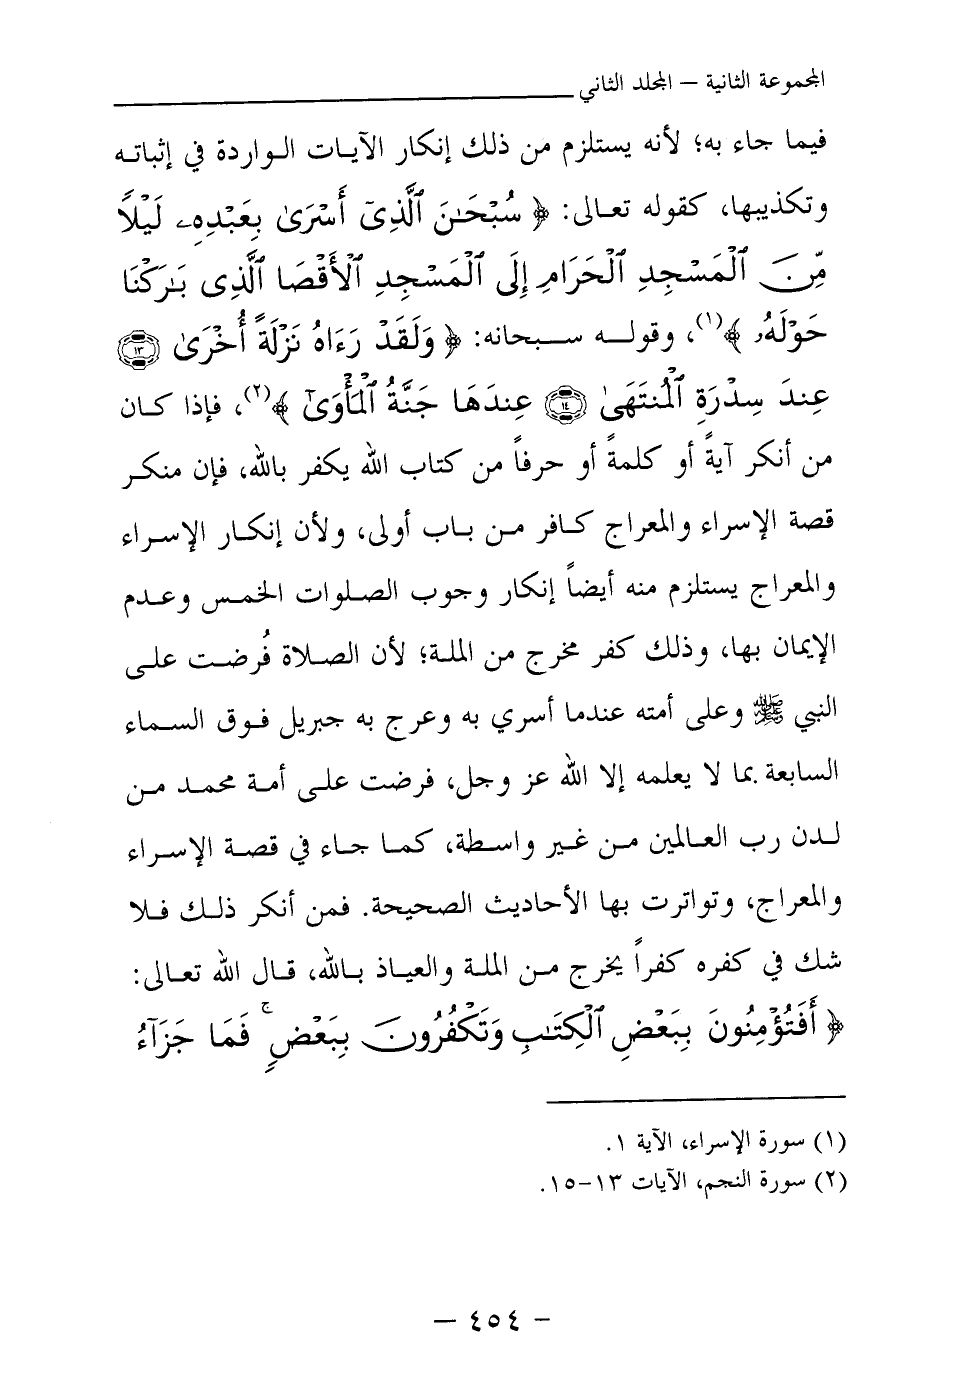 المجموعة الثانية – المجلد الثاني
فيما جاء به؛ لأنه يستلزم من ذلك إنكار الآيات الواردة في إثباته
وتكذيبها، كقوله تعالى: ﴿ سُبْحَٰنَ ٱلَّذِىٓ أَسْرَىٰ بِعَبْدِهِۦ لَيْلًا
مِّنَ ٱلْمَسْجِدِ ٱلْحَرَامِ إِلَى ٱلْمَسْجِدِ ٱلْأَقْصَا ٱلَّذِى بَٰرَكْنَا
حَوْلَهُۥ ﴾(١)، وقوله سبحانه: ﴿ وَلَقَدْ رَءَاهُ نَزْلَةً أُخْرَىٰ ۝١٣
عِندَ سِدْرَةِ ٱلْمُنتَهَىٰ ۝١٤ عِندَهَا جَنَّةُ ٱلْمَأْوَىٰٓ ﴾(٢)، فإذا كان
من أنكر آيةً أو كلمةً أو حرفاً من كتاب الله يكفر بالله، فإن منكر
قصة الإسراء والمعراج كافر من باب أولى، ولأن إنكار الإسراء
والمعراج يستلزم منه أيضاً إنكار وجوب الصلوات الخمس وعدم
الإيمان بها، وذلك كفر مخرج من الملة؛ لأن الصلاة فُرضت على
النبي ﷺ وعلى أمته عندما أسري به وعرج به جبريل فوق السماء
السابعة بما لا يعلمه إلا الله عز وجل، فرضت على أمة محمد من
لدن رب العالمين من غير واسطة، كما جاء في قصة الإسراء
والمعراج، وتواترت بها الأحاديث الصحيحة. فمن أنكر ذلك فلا
شك في كفره كفراً يخرج من الملة والعياذ بالله، قال الله تعالى:
﴿ أَفَتُؤْمِنُونَ بِبَعْضِ ٱلْكِتَٰبِ وَتَكْفُرُونَ بِبَعْضٍۚ فَمَا جَزَآءُ
(١) سورة الإسراء، الآية ١.
(٢) سورة النجم، الآيات ١٣-١٥.
– ٤٥٤ –